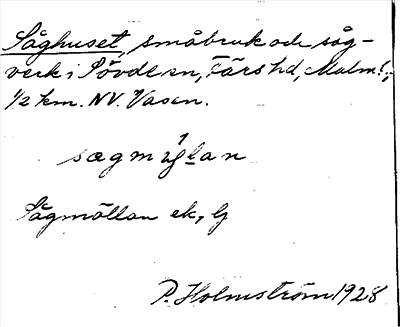 Såghuset, småbruk och såg-
verk i Sövde sn, Färs hd, Malm.l.,
1/2 km. NV. Vasen.
Sågmöllan ek, lg
P. Holmström 1928